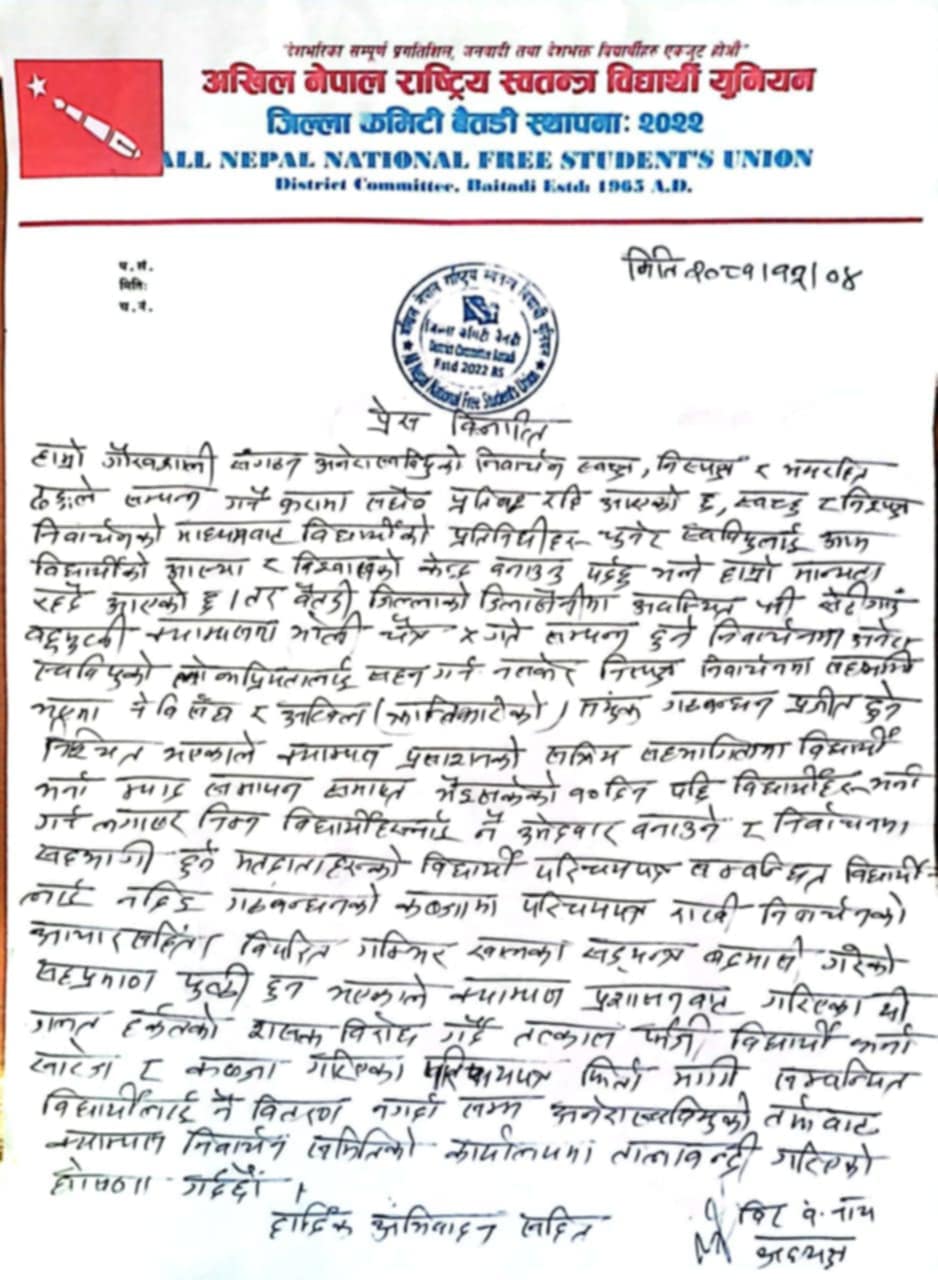 "देशभरिका सम्पूर्ण प्रगतिशिल, जनवादी तथा देशभक्त विद्यार्थीहरु एकजुट होऔं"
अखिल नेपाल राष्ट्रिय स्वतन्त्र विद्यार्थी युनियन
जिल्ला कमिटी बैतडी स्थापनाः २०२२
ALL NEPAL NATIONAL FREE STUDENT'S UNION
District Committee, Baitadi Estd: 1965 A.D.
प.सं.
मितिः
च.नं.
मिति २०८१।१२।०४
अखिल नेपाल राष्ट्रिय स्वतन्त्र विद्यार्थी युनियन
जिल्ला कमिटी बैतडी
District Committee Baitadi
Estd 2022 BS
All Nepal National Free Student's Union
प्रेस विज्ञप्ति
हाम्रो गौरवशाली संगठन अनेरास्ववियुको निर्वाचन स्वच्छ, निस्पक्ष र भयरहित
ढङ्गले सम्पन्न गर्ने कुरामा सधैँ प्रतिबद्ध रहि आएको छ, स्वच्छ र निस्पक्ष
निर्वाचनको माध्यमबाट विद्यार्थीको प्रतिनिधीहरु चुनेर स्ववियुलाई आम
विद्यार्थीको आस्था र विश्वासको केन्द्र बनाउनु पर्दछ भन्ने हाम्रो मान्यता
रहदै आएको छ। तर बैतडी जिल्लाको डिलासैनीमा अवस्थित श्री
क्याम्पसमा भोली चैत्र ५ गते सम्पन्न हुने निर्वाचनमा अनेरा
स्ववियुको लोकप्रियतालाई सहन गर्न नसकेर निस्पक्ष निर्वाचनमा सहभागी
भएमा ने वि संघ र अखिल (क्रान्तिकारीको) संयुक्त गठबन्धन हुने
निश्चित भएकाले क्याम्पस प्रशासनको सक्रिय सहभागितामा विद्यार्थी
भर्ना म्याद समापन समाप्त भैसकेको १० दिन पछि विद्यार्थीहरु भर्ना
गर्न लगाएर निज विद्यार्थीहरुलाई नै उमेदवार बनाउने र निर्वाचनमा
सहभागी हुने मतदाताहरुको विद्यार्थी परिचयपत्र सम्बन्धित विद्यार्थी-
लाई नदिई गठबन्धनको कब्जामा परिचयपत्र राखी निर्वाचनको
आचारसंहिता विपरित गम्भिर खालका षड्यन्त्र बदमासी गरेको
सहप्रमाण पुष्टी हुन भएकाले क्याम्पस प्रशासनबाट गरिएका यी
गलत हर्कतको सशक्त विरोध गर्दै तत्काल फर्जी विद्यार्थी भर्ना
खारेज र कब्जा गरिएका परिचयपत्र फिर्ता मागी सम्बन्धित
विद्यार्थीलाई नै वितरण नगर्दा सम्म अनेरास्ववियुको तर्फबाट
क्याम्पस निर्वाचन समितिको कार्यालयमा तालाबन्दी गरिएको
घोषणा गर्दछौं ।
हार्दिक अभिवादन सहित
अध्यक्ष